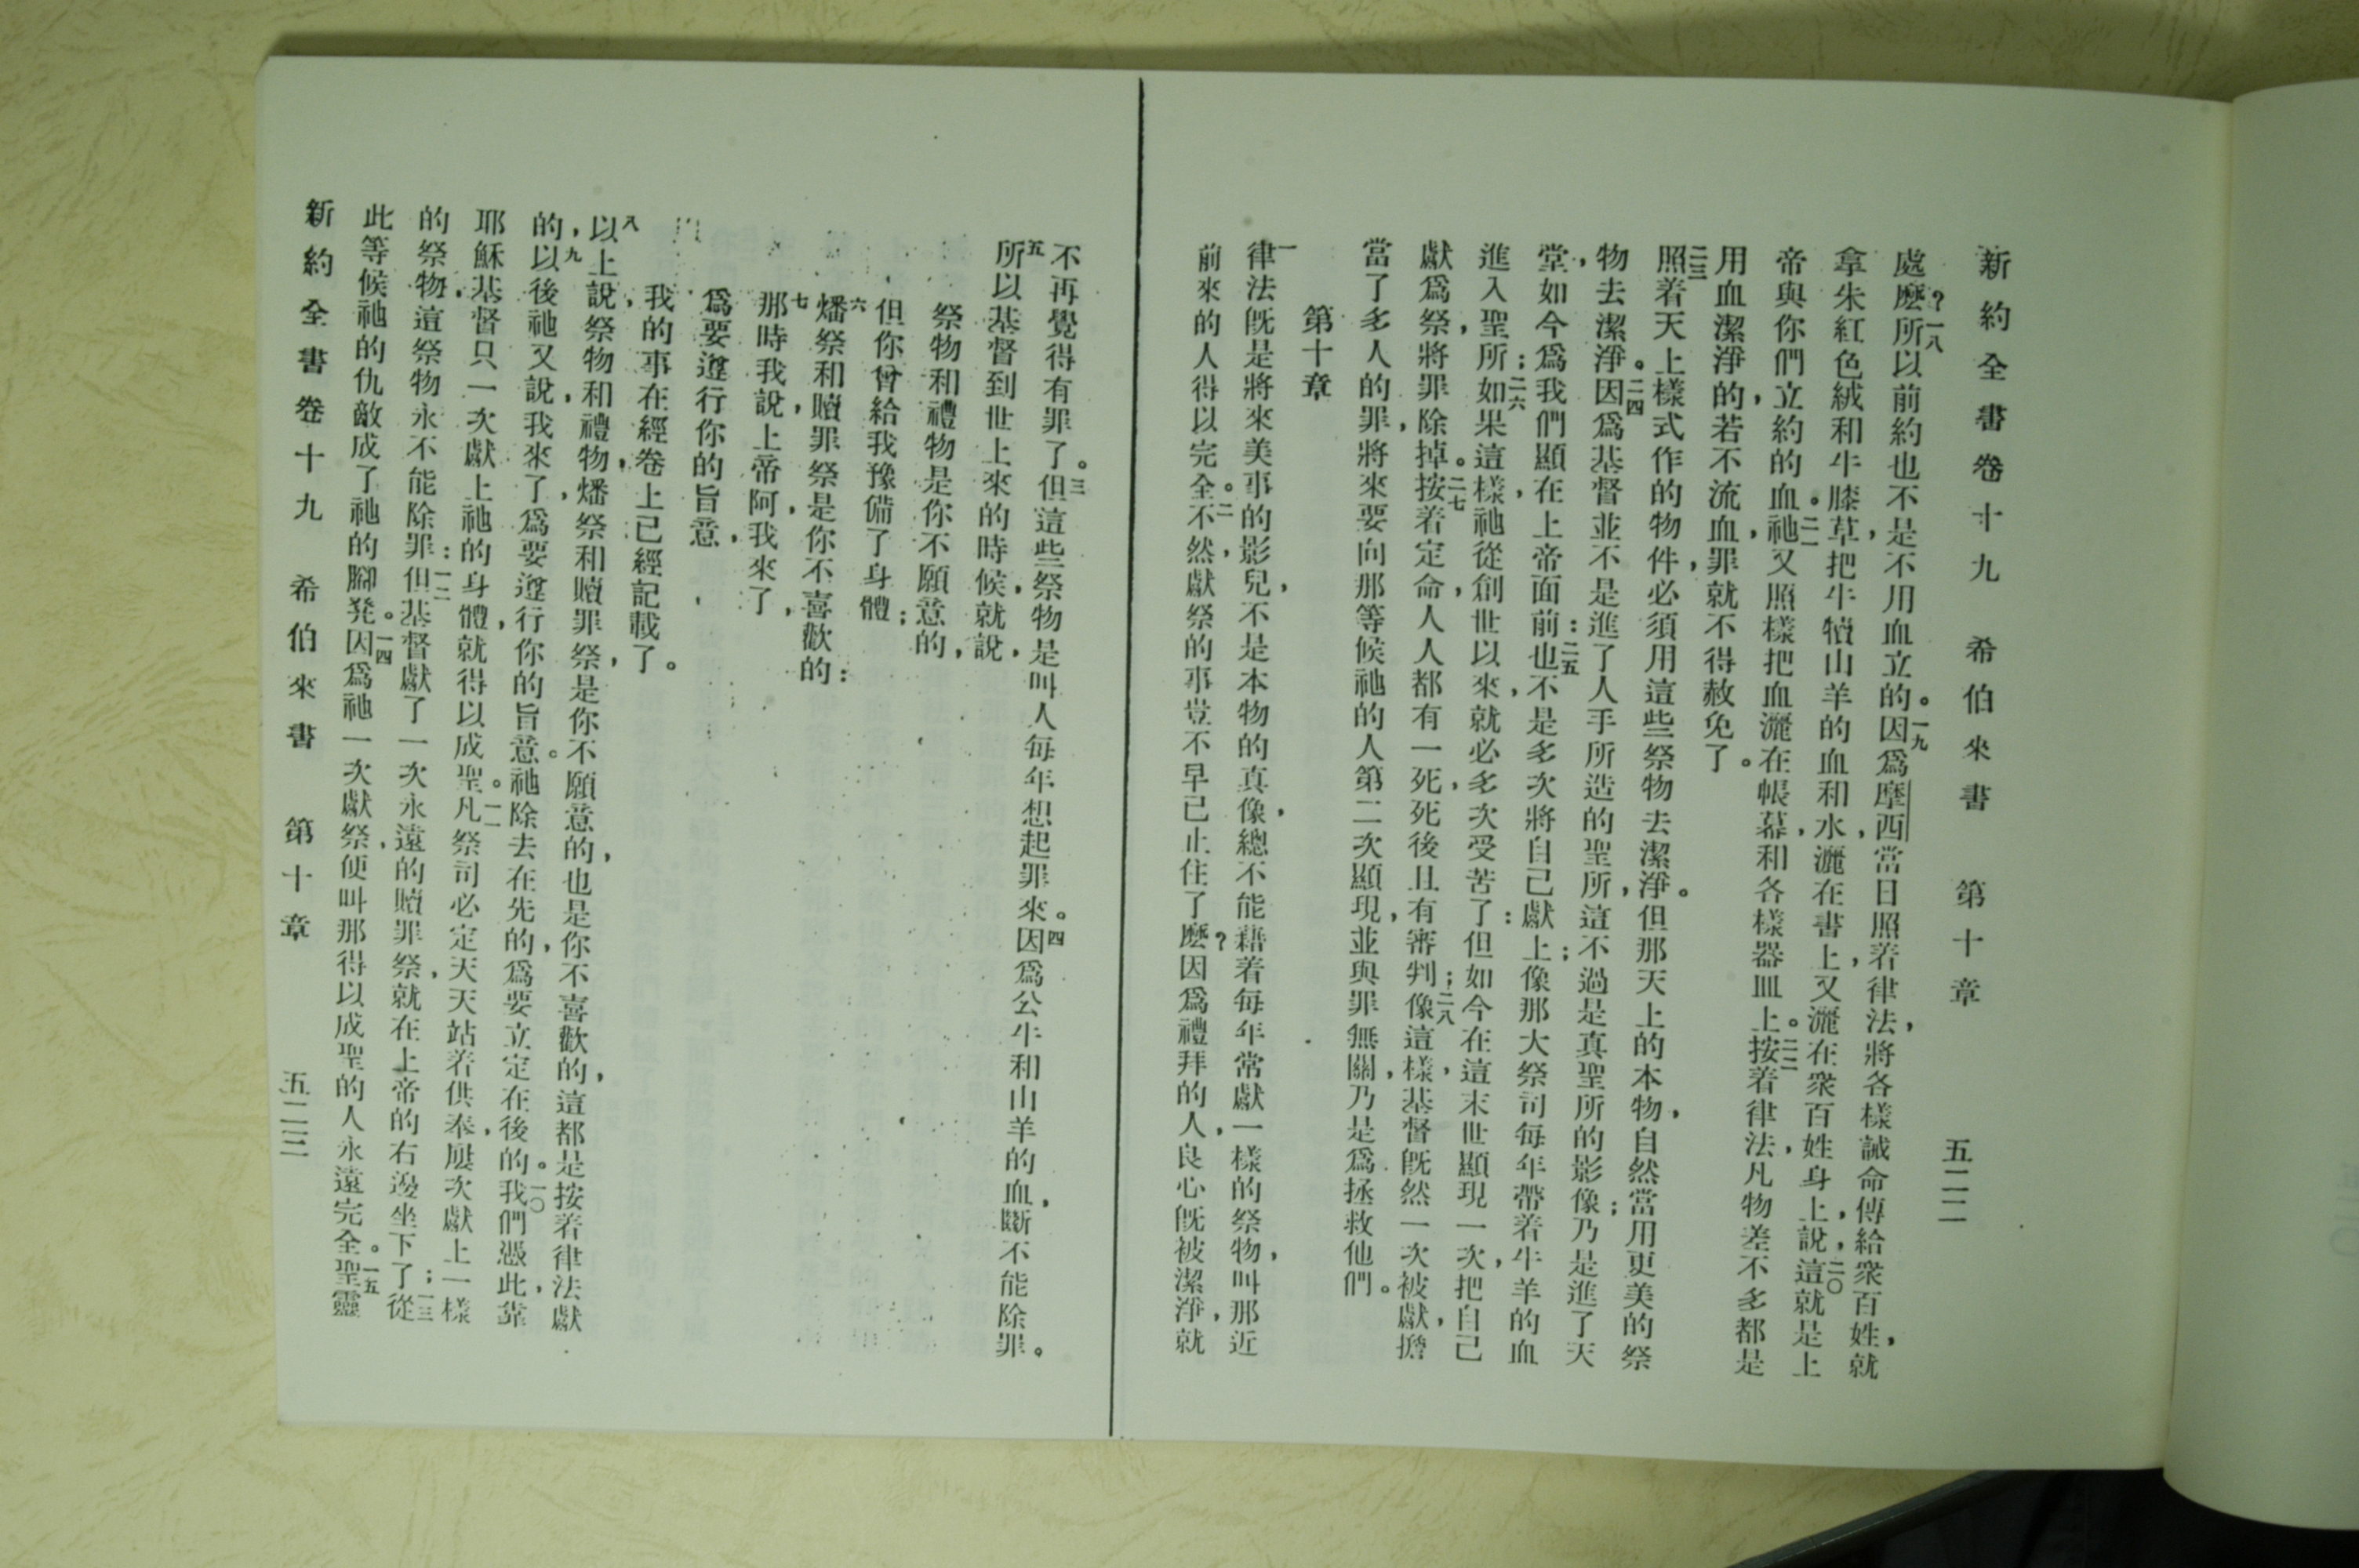 新約全書卷十九　希伯來書　第十章　五二二
處麼？一八所以前約也不是不用血立的。一九因爲摩西當日照着律法，將各樣誡命傳給衆百姓，就
拿朱紅色絨和牛膝草，把牛犢山羊的血和水，灑在書上，又灑在衆百姓身上，說，二〇這就是上
帝與你們立約的血。二一祂又照樣把血灑在帳幕，和各樣器皿上。二二按着律法，凡物差不多都是
用血潔淨的，若不流血，罪就不得赦免了。
二三照着天上樣式作的物件，必須用這些祭物去潔淨。但那天上的本物，自然當用更美的祭
物去潔淨。二四因爲基督並不是進了人手所造的聖所，這不過是真聖所的影像；乃是進了天
堂，如今爲我們顯在上帝面前：二五也不是多次將自己獻上；像那大祭司每年帶着牛羊的血
進入聖所；二六如果這樣，祂從創世以來，就必多次受苦了：但如今在這末世顯現一次，把自己
獻爲祭，將罪除掉。二七按着定命，人人都有一死，死後且有審判；二八像這樣，基督旣然一次被獻，擔
當了多人的罪，將來要向那等候祂的人第二次顯現，並與罪無關，乃是爲拯救他們。
第十章
一律法旣是將來美事的影兒，不是本物的真像，總不能藉着每年常獻一樣的祭物，叫那近
前來的人得以完全。二不然，獻祭的事豈不早已止住了麼？因爲禮拜的人，良心旣被潔淨，就
不再覺得有罪了。三但這些祭物是叫人每年想起罪來。四因爲公牛和山羊的血，斷不能除罪。
五所以基督到世上來的時候，就說，
祭物和禮物是你不願意的，
但你曾給我豫備了身體；
六燔祭和贖罪祭是你不喜歡的：
七那時我說，上帝阿，我來了，
爲要遵行你的旨意，
我的事在經卷上已經記載了。
八以上說，祭物和禮物，燔祭和贖罪祭，是你不願意的，也是你不喜歡的，這都是按着律法獻
的，九以後祂又說，我來了，爲要遵行你的旨意。祂除去在先的，爲要立定在後的。一〇我們憑此，靠
耶穌基督只一次獻上祂的身體，就得以成聖。一一凡祭司必定天天站着供奉，屢次獻上一樣
的祭物，這祭物永不能除罪：一二但基督獻了一次永遠的贖罪祭，就在上帝的右邊坐下了；一三從
此等候祂的仇敵成了祂的腳凳。一四因爲祂一次獻祭，便叫那得以成聖的人永遠完全。一五聖靈
新約全書卷十九　希伯來書　第十章　五二三